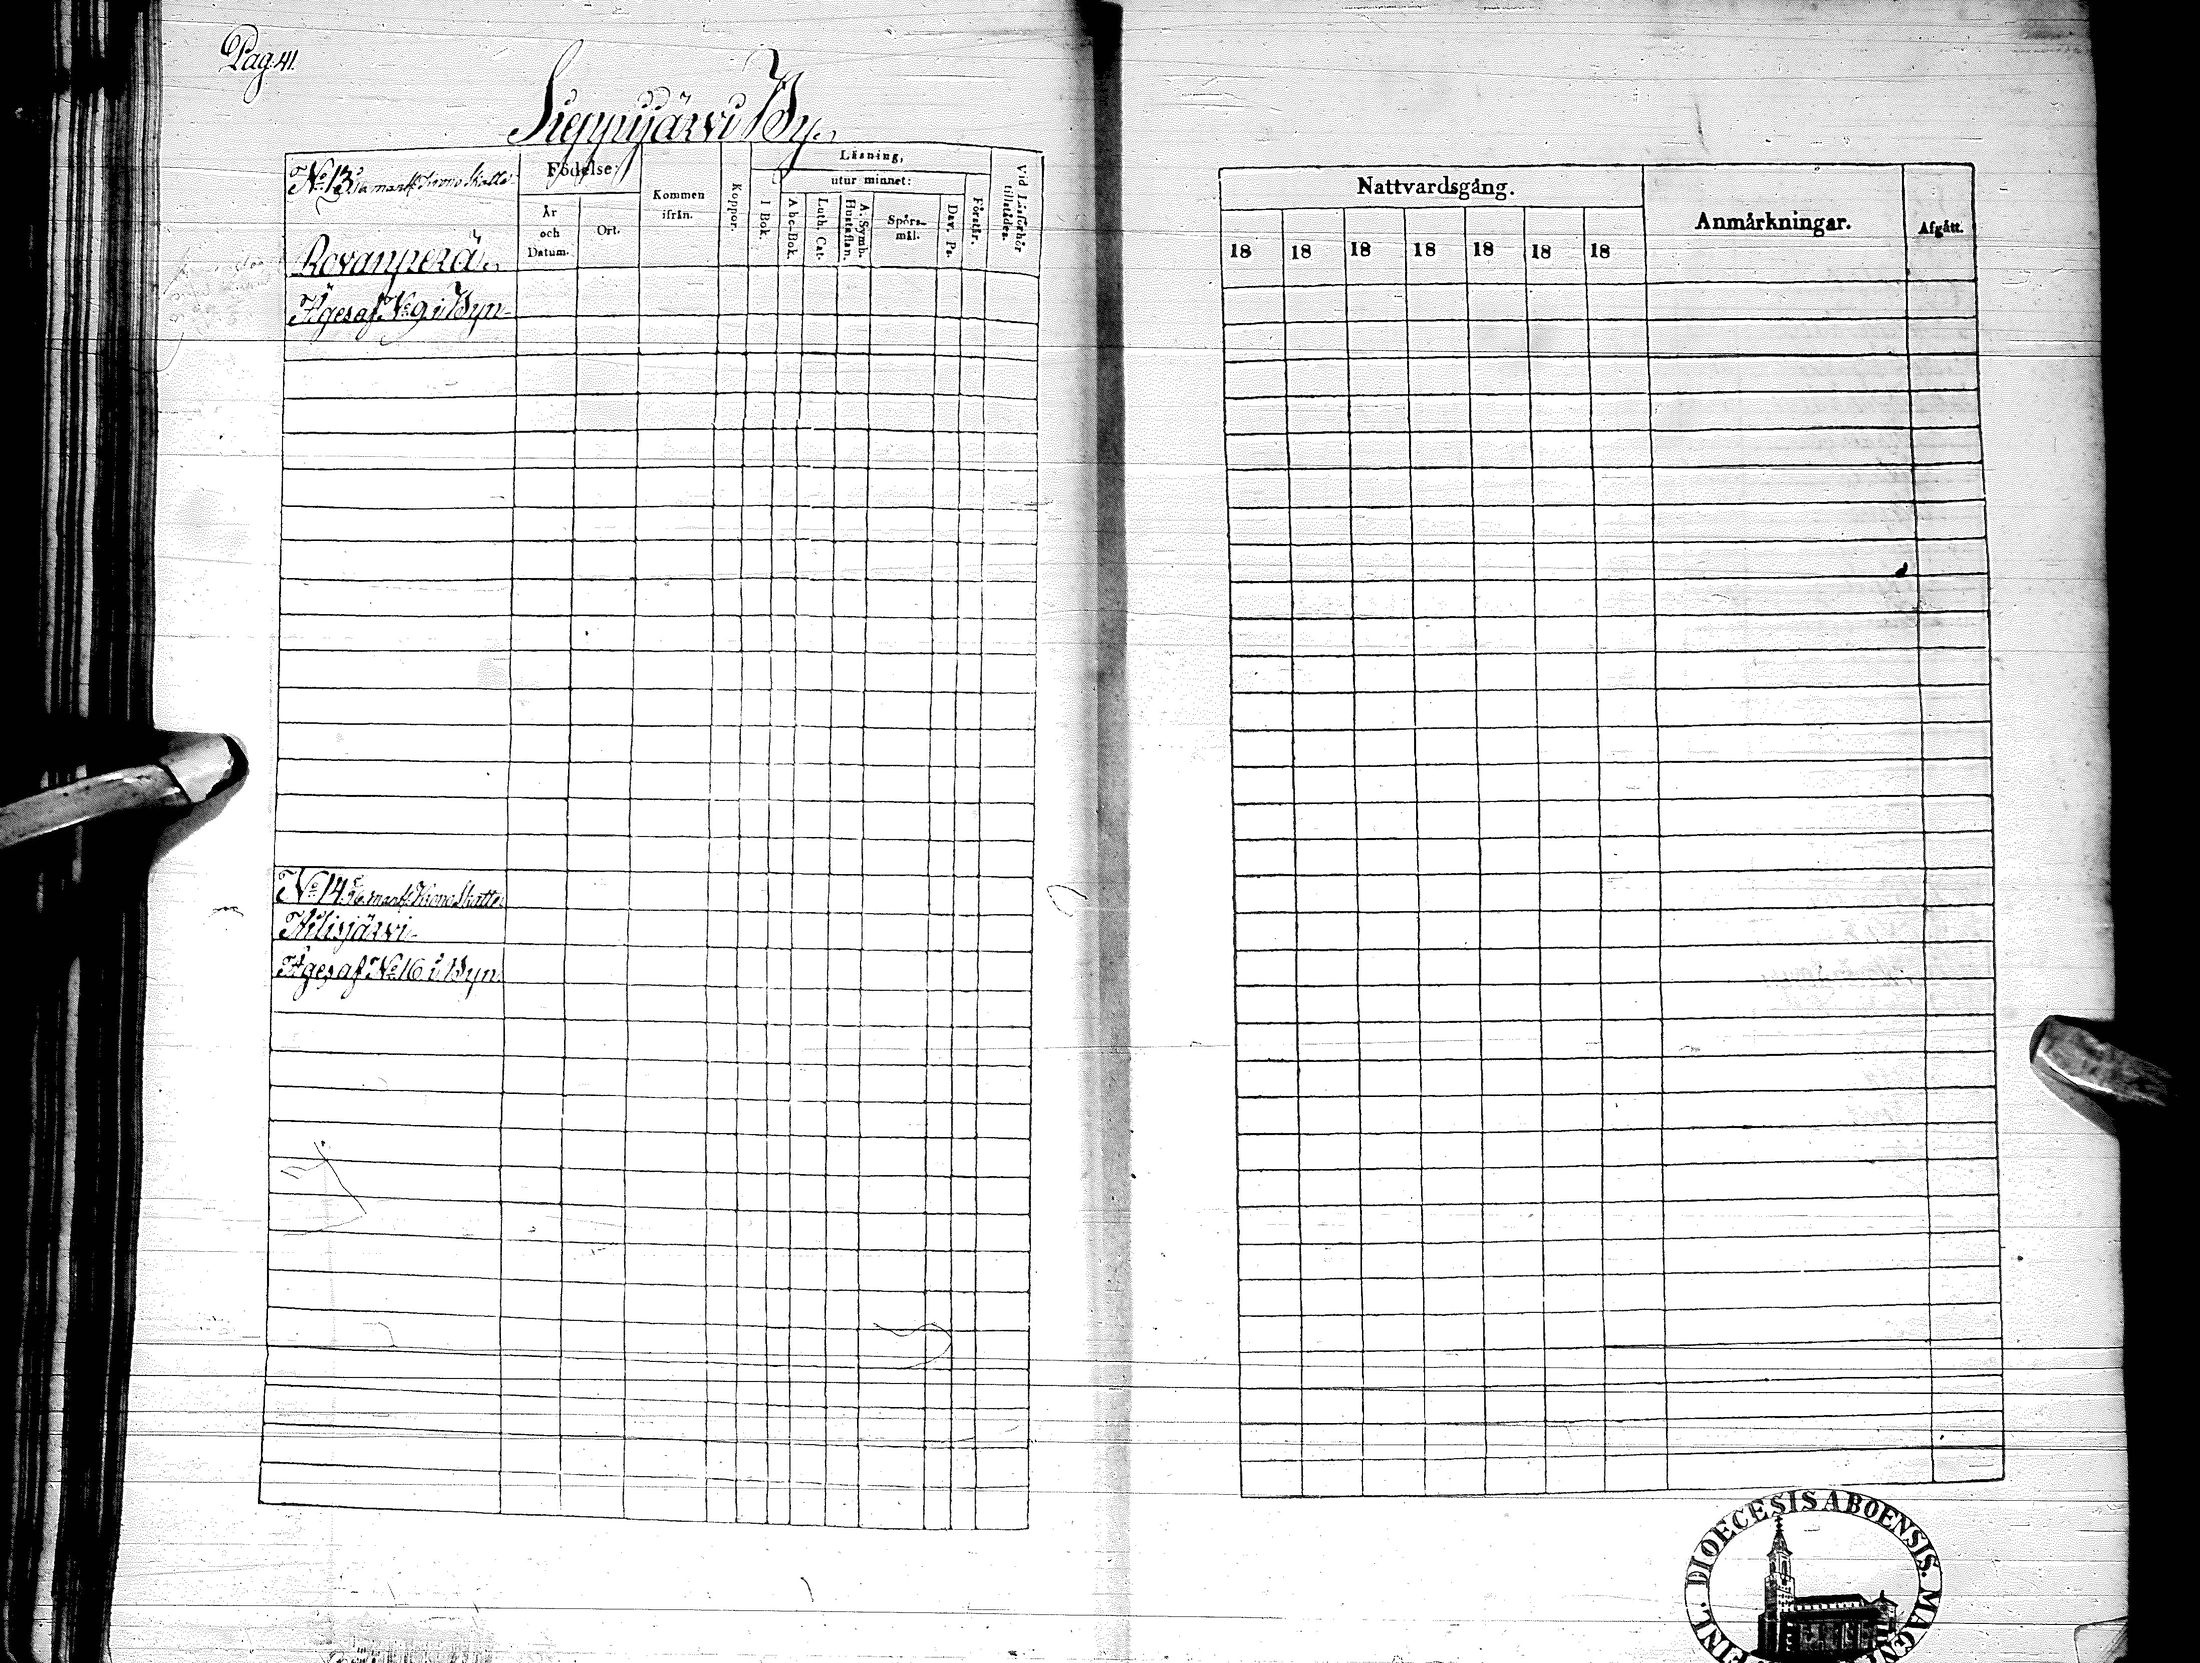 Pag. 41.
Sieppijärvi By.
No 13 mantl. Krono Skatte
Rovanperä.
Äges af No 9 i Byn.
Födelse,
År
och
Datum.
Ort.
Kommen
ifrån.
Koppor.
Läsning,
utur minnet:
I Bok.
Abc-Bok.
Luth. Cat.
A. Symb.
Hustaflan.
Spörs-
mål.
Dav. Ps.
Förstår.
Vid Läsförhör
tillstädes.
No 14 mantl. Krono Skatte
Kilisjärvi.
Äges af No 16 i Byn.
Nattvardsgång.
18 18 18 18 18 18 18
Anmärkningar.
Afgått.
DIOECESIS ABOENSIS. MAGNI
FINL.